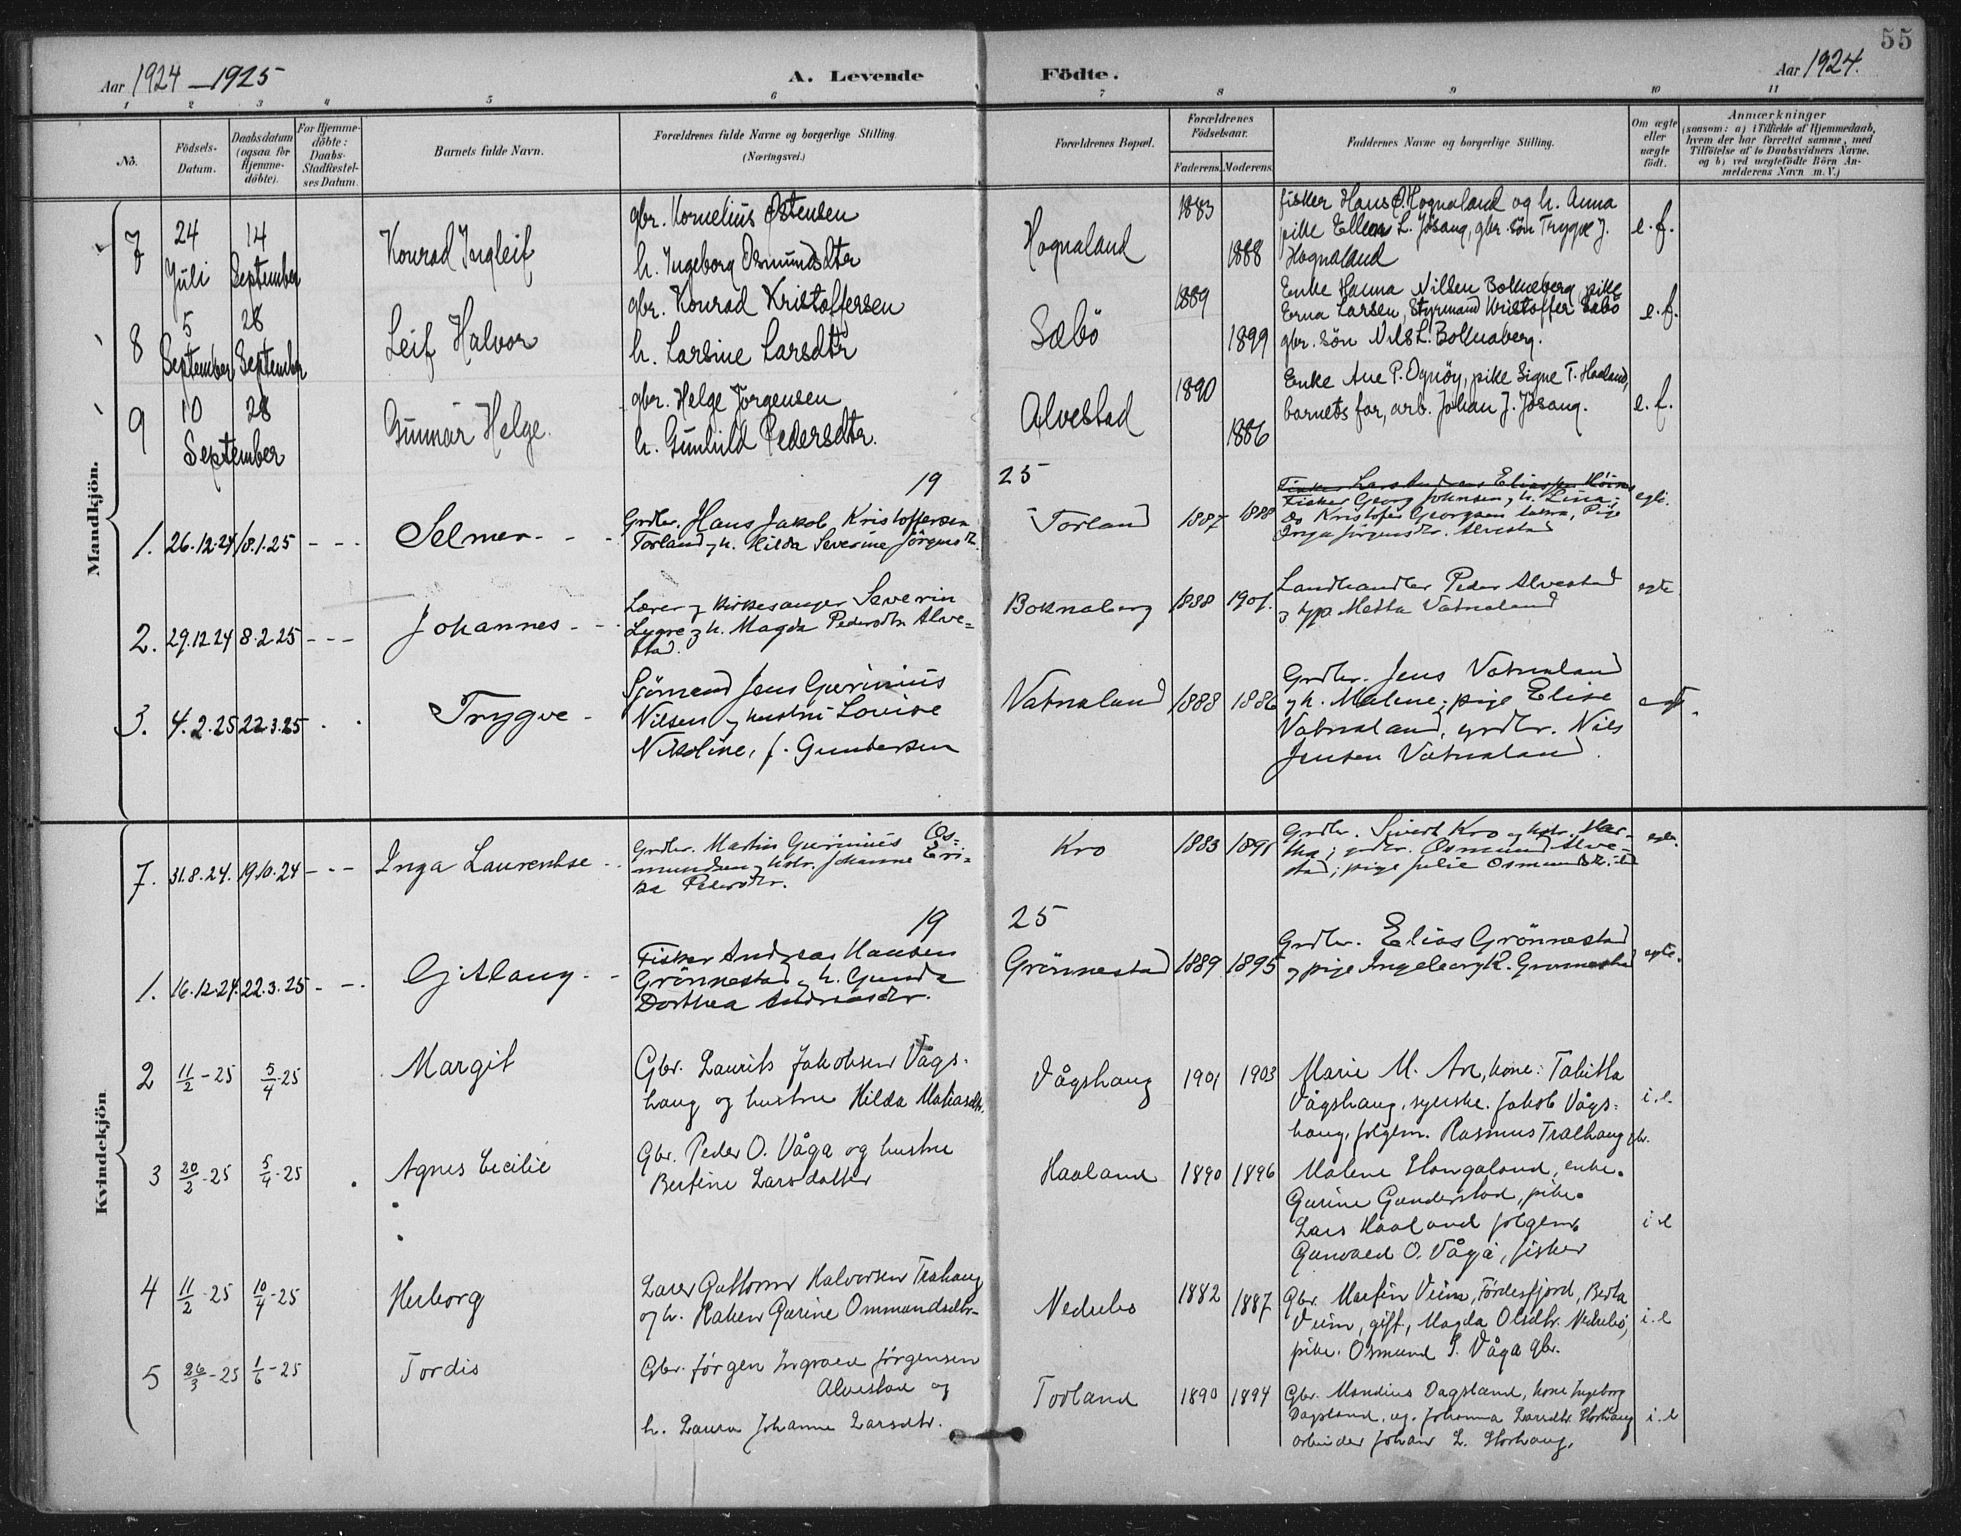 55
Aar 1924 — 1925
A. Levende
Födte.
Aar 1924.
1 2 3 4 5 6 7 8 9 10 11
No.
Födsels-Datum.
Daabsdatum (ogsaa for Hjemme-döbte).
For Hjemme-döbte: Daabs-Stadfæstel-ses Datum.
Barnets fulde Navn.
Forældrenes fulde Navne og borgerlige Stilling.
(Næringsvei.)
Forældrenes Bopæl.
Forældrenes Födselsaar.
Faderens. Moderens.
Faddernes Navne og borgerlige Stilling.
Om ægte eller uægte födt.
Anmærkninger
(saasom: a) i Tilfælde af Hjemmedaab, hvem der har forrettet samme, med Tilföielse af to Daabsvidners Navne. og b) ved uægtefödte Börn An-melderens Navn m. V.)
Mandkjön.
7 24 Juli 14 September Konrad Ingleif
gbr. Kornelius Østensen
h. Ingeborg Osmundsdtr
Hognaland 1883 1888
fisker Hans O. Hognaland og h. Anna
pike Ellen L. Jösang, gbr. sön Trygve J.
Hognaland
e. f.
8 5 September 28 September Leif Halvor
gbr. Konrad Kristoffersen
h. Larsine Larsdtr
Sæbö 1889 1899
Enke Hanna Nilsen Boknaberg, pike
Erna Larsen, Styrmand Kristoffer Sæbö
gbr. sön Nils L. Boknaberg.
e. f.
9 10 28 September Gunnar Helge.
gbr. Helge Jörgensen
h. Gunhild Pedersdtr.
Alvestad 1890 1886
Enke Ane P. Ognöy, pike Signe T. Haaland,
barnets far, arb. Johan J. Jösang.
e. f.
19 25
1. 26.12.24 18.1.25 - - - Selmer - - -
Grdbr. Hans Jakob Kristoffersen
Torland og h. Hilda Severine Jörgensdtr.
Torland 1887 1888
Fisker Georg Johnsen, h. Lina;
Kristofer Georgsen, Pige
Inga Jörgensdtr. Alvestad
2. 29.12.24 8.2.25 - - - Johannes - -
Lærer og kirkesanger Severin
Lygre og h. Magda Pedersdtr Alve=
stad.
Boknaberg 1888 1901.
Landhandler Peder Alvestad
og Metta Vatnaland
egte
3. 4.2.25 22.3.25 Trygve -
Sjömand Jens Gurinius
Nilsen og hustru Lovise
Nikoline, f. Gundersen
Vatnaland 1888 1886
Grdbr. Jens Vatnaland
og h. Malene; pige Elise
Vatnaland, grdbr. Nils
Jensen Vatnaland.
Kvindekjön
7. 31.8.24. 19.10.24 - - - Inga Laurentse - -
Grdbr. Martin Gurinius Os=
mundsen og hstr. Johanne Eri=
ka Pedersdtr.
Kro 1883 1891
Grdbr. Sivert Kro og hstr. Mar-
tha; grdbr. Osmund Alve-
stad; pige Julie Osmundsdtr.
19 25
1. 16.12.24. 22.3.25 - - - Gjitlaug - -
Fisker Andreas Hansen
Grönnestad og h. Gunda
Dorthea Andreasdtr.
Grönnestad 1889. 1895
Grdbr. Elias Grönnestad
og pige Ingeborg K. Grönnestad
egte.
2 11/2-25 5/4-25 Margit
Gbr. Laurits Jakobsen Vågs-
haug og hustru Hilda Matiasdtr.
Vågshaug 1901 1903
Marie M. Are, kone: Tabitta
Vågshaug, syerske. Jakob Vågs-
haug, folgem. Rasmus Tralhaug gbr.
i. e.
3 20/2-25 5/4-25 Agnes Cecilie
Gbr. Peder O. Våga og hustru
Bertine Larsdatter
Haaland 1890 1896
Malene Hongaland, enke.
Gurine Gunderstad, pike.
Lars Haaland folgem.
Gunvald O. Våga, fisker
i e
4 11/2-25 10/4-25 Herborg
Lærer Guttorm Halvorsen Tralhaug
og h. Rakel Gurine Ommundsdtr-
Nedrebö 1882 1887
Gbr. Martin Veim, Fördesfjord, Berta
Veim, gift, Magda Olsdtr. Nedrebö,
pike. Osmund P. Våga gbr.
i. e
5 26/3-25 1/6-25 Tordis
Gbr. Jörgen Ingvald Jörgensen
Alvestad og
h. Laura Johanne Larsdtr.
Torland 1890 1894
Gbr. Mandius Dagsland, kone Ingeborg
Dagsland, ug. Johanna Larsdtr. Storhaug
arbeider Johan L. Storhaug.
i e